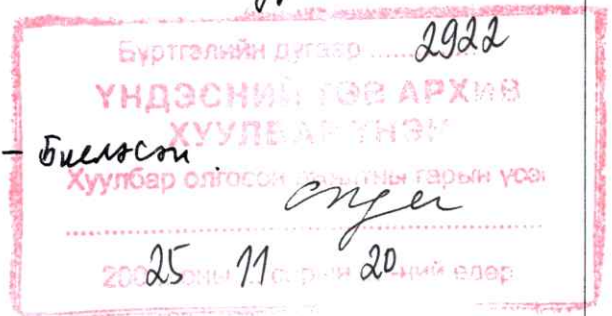 Бүртгэлийн дугаар ...... 2922
ҮНДЭСНИЙ ТӨВ АРХИВ
ХУУЛБАР ҮНЭН
– Биелсэн
Хуулбар олгосон ажилтны гарын үсэг
2025 оны 11 сарын 20-ний өдөр